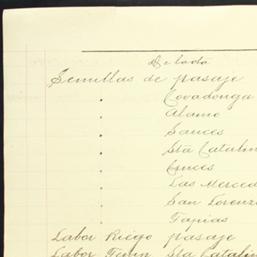 Semillas de pasaje
" Covadonga
" Alamo
" Sauces
" Sta Catalin
" Cruces
" Las Merced
" San Lorenz
" Tapias
Labor Riego pasaje
Labor Sta Catalin